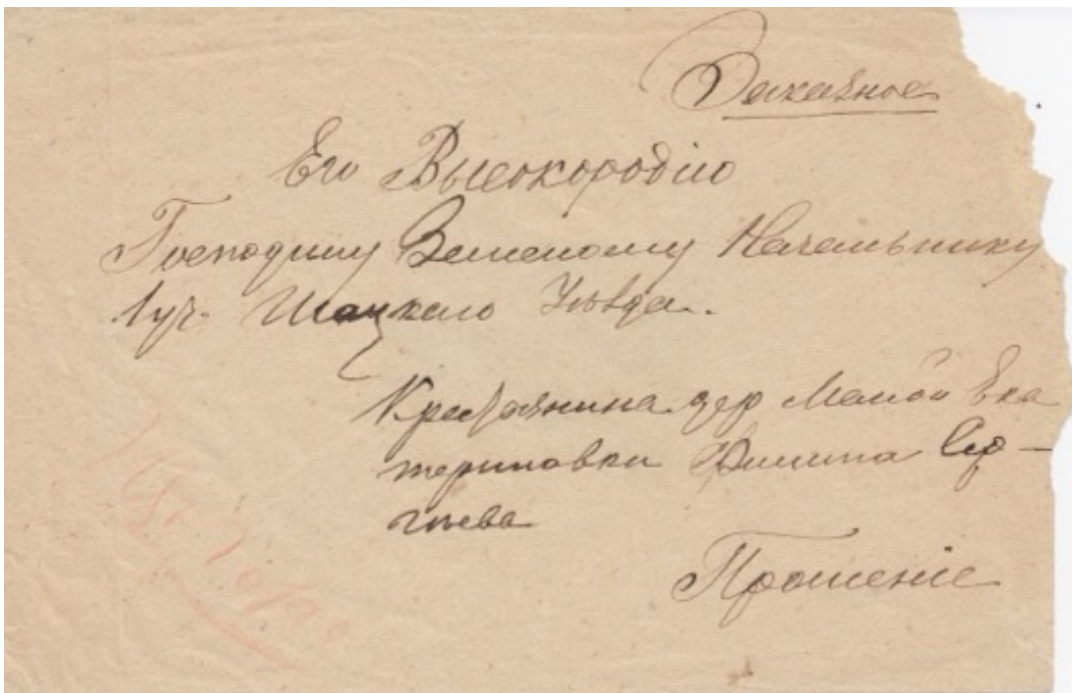 Заказное
Его Высокородію
Господину Земскому Начальнику
1 уч. Шацкаго Уѣзда.
Крестьянина дер Малой Ека
териновки Филипа Сер-
гѣева
Прошеніе